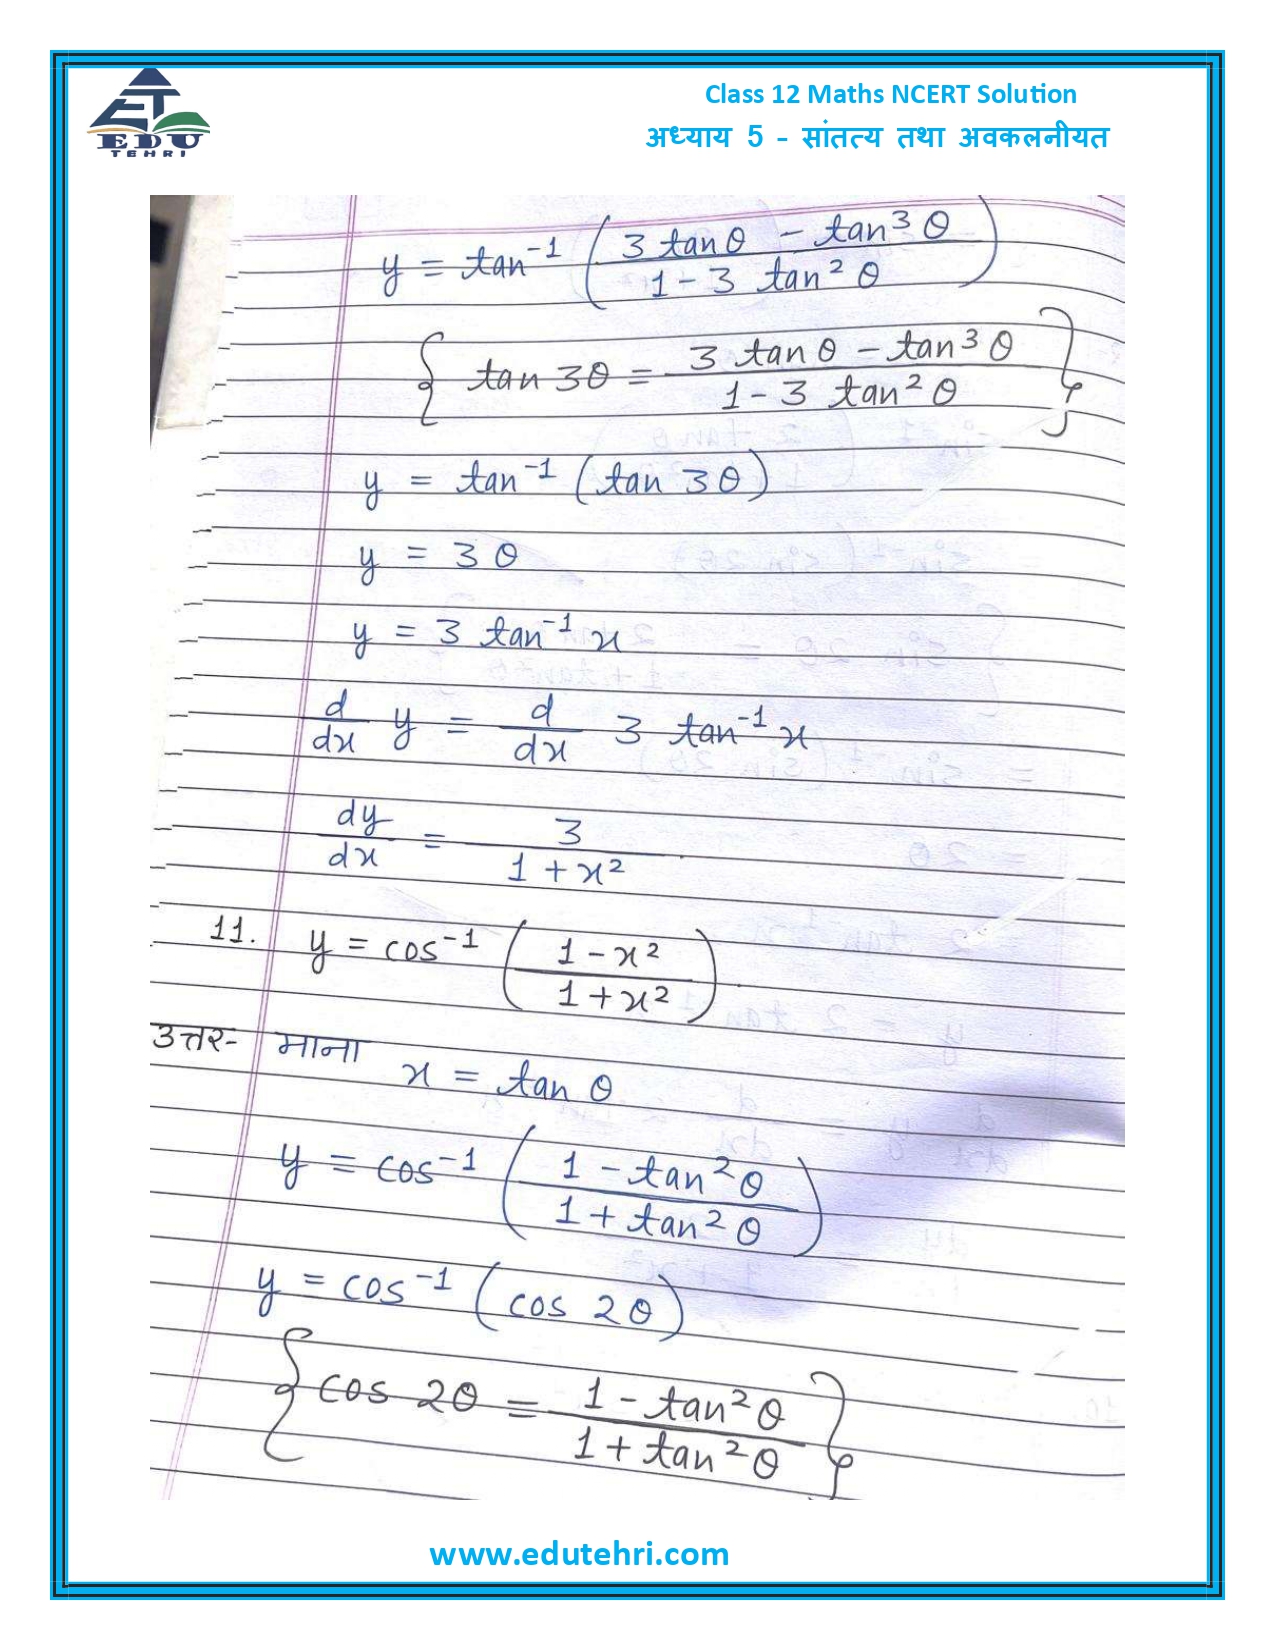 EDU
TEHRI
Class 12 Maths NCERT Solution
अध्याय 5 - सांतत्य तथा अवकलनीयत
y = tan⁻¹ ( (3 tanθ - tan³θ) / (1 - 3 tan²θ) )
{ tan 3θ = (3 tanθ - tan³θ) / (1 - 3 tan²θ) }
y = tan⁻¹ (tan 3θ)
y = 3θ
y = 3 tan⁻¹ x
d/dx y = d/dx 3 tan⁻¹ x
dy/dx = 3 / (1 + x²)
11. y = cos⁻¹ ( (1 - x²) / (1 + x²) )
उत्तर- माना x = tan θ
y = cos⁻¹ ( (1 - tan²θ) / (1 + tan²θ) )
y = cos⁻¹ (cos 2θ)
{ cos 2θ = (1 - tan²θ) / (1 + tan²θ) }
www.edutehri.com